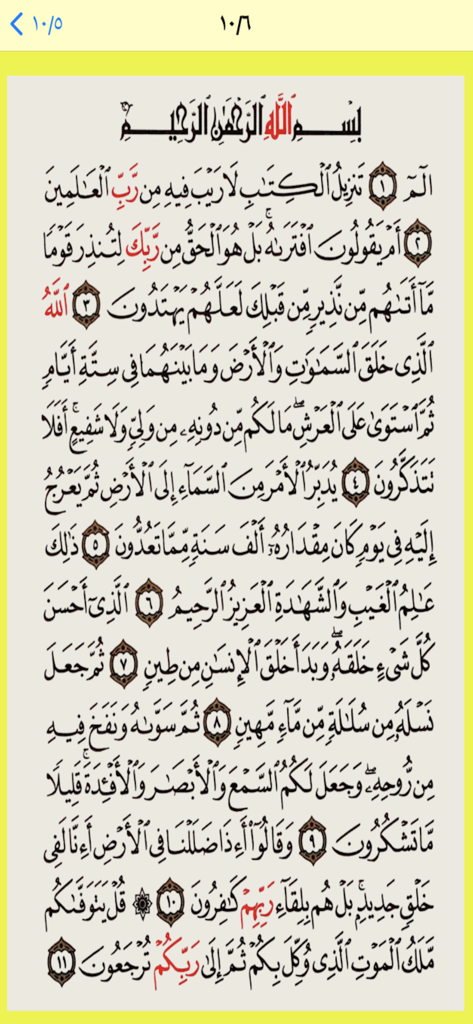 ١٠/٥
١٠/٦
بِسْمِ ٱللَّهِ ٱلرَّحْمَٰنِ ٱلرَّحِيمِ
الٓمٓ ١ تَنزِيلُ ٱلْكِتَٰبِ لَا رَيْبَ فِيهِ مِن رَّبِّ ٱلْعَٰلَمِينَ
٢ أَمْ يَقُولُونَ ٱفْتَرَىٰهُ ۚ بَلْ هُوَ ٱلْحَقُّ مِن رَّبِّكَ لِتُنذِرَ قَوْمًا
مَّآ أَتَىٰهُم مِّن نَّذِيرٍ مِّن قَبْلِكَ لَعَلَّهُمْ يَهْتَدُونَ ٣ ٱللَّهُ
ٱلَّذِى خَلَقَ ٱلسَّمَٰوَٰتِ وَٱلْأَرْضَ وَمَا بَيْنَهُمَا فِى سِتَّةِ أَيَّامٍ
ثُمَّ ٱسْتَوَىٰ عَلَى ٱلْعَرْشِ ۖ مَا لَكُم مِّن دُونِهِۦ مِن وَلِىٍّ وَلَا شَفِيعٍ ۚ أَفَلَا
تَتَذَكَّرُونَ ٤ يُدَبِّرُ ٱلْأَمْرَ مِنَ ٱلسَّمَآءِ إِلَى ٱلْأَرْضِ ثُمَّ يَعْرُجُ
إِلَيْهِ فِى يَوْمٍ كَانَ مِقْدَارُهُۥٓ أَلْفَ سَنَةٍ مِّمَّا تَعُدُّونَ ٥ ذَٰلِكَ
عَٰلِمُ ٱلْغَيْبِ وَٱلشَّهَٰدَةِ ٱلْعَزِيزُ ٱلرَّحِيمُ ٦ ٱلَّذِىٓ أَحْسَنَ
كُلَّ شَىْءٍ خَلَقَهُۥ ۖ وَبَدَأَ خَلْقَ ٱلْإِنسَٰنِ مِن طِينٍ ٧ ثُمَّ جَعَلَ
نَسْلَهُۥ مِن سُلَٰلَةٍ مِّن مَّآءٍ مَّهِينٍ ٨ ثُمَّ سَوَّىٰهُ وَنَفَخَ فِيهِ
مِن رُّوحِهِۦ ۖ وَجَعَلَ لَكُمُ ٱلسَّمْعَ وَٱلْأَبْصَٰرَ وَٱلْأَفْـِٔدَةَ ۚ قَلِيلًا
مَّا تَشْكُرُونَ ٩ وَقَالُوٓا۟ أَءِذَا ضَلَلْنَا فِى ٱلْأَرْضِ أَءِنَّا لَفِى
خَلْقٍ جَدِيدٍۭ ۚ بَلْ هُم بِلِقَآءِ رَبِّهِمْ كَٰفِرُونَ ١٠ ۞ قُلْ يَتَوَفَّىٰكُم
مَّلَكُ ٱلْمَوْتِ ٱلَّذِى وُكِّلَ بِكُمْ ثُمَّ إِلَىٰ رَبِّكُمْ تُرْجَعُونَ ١١